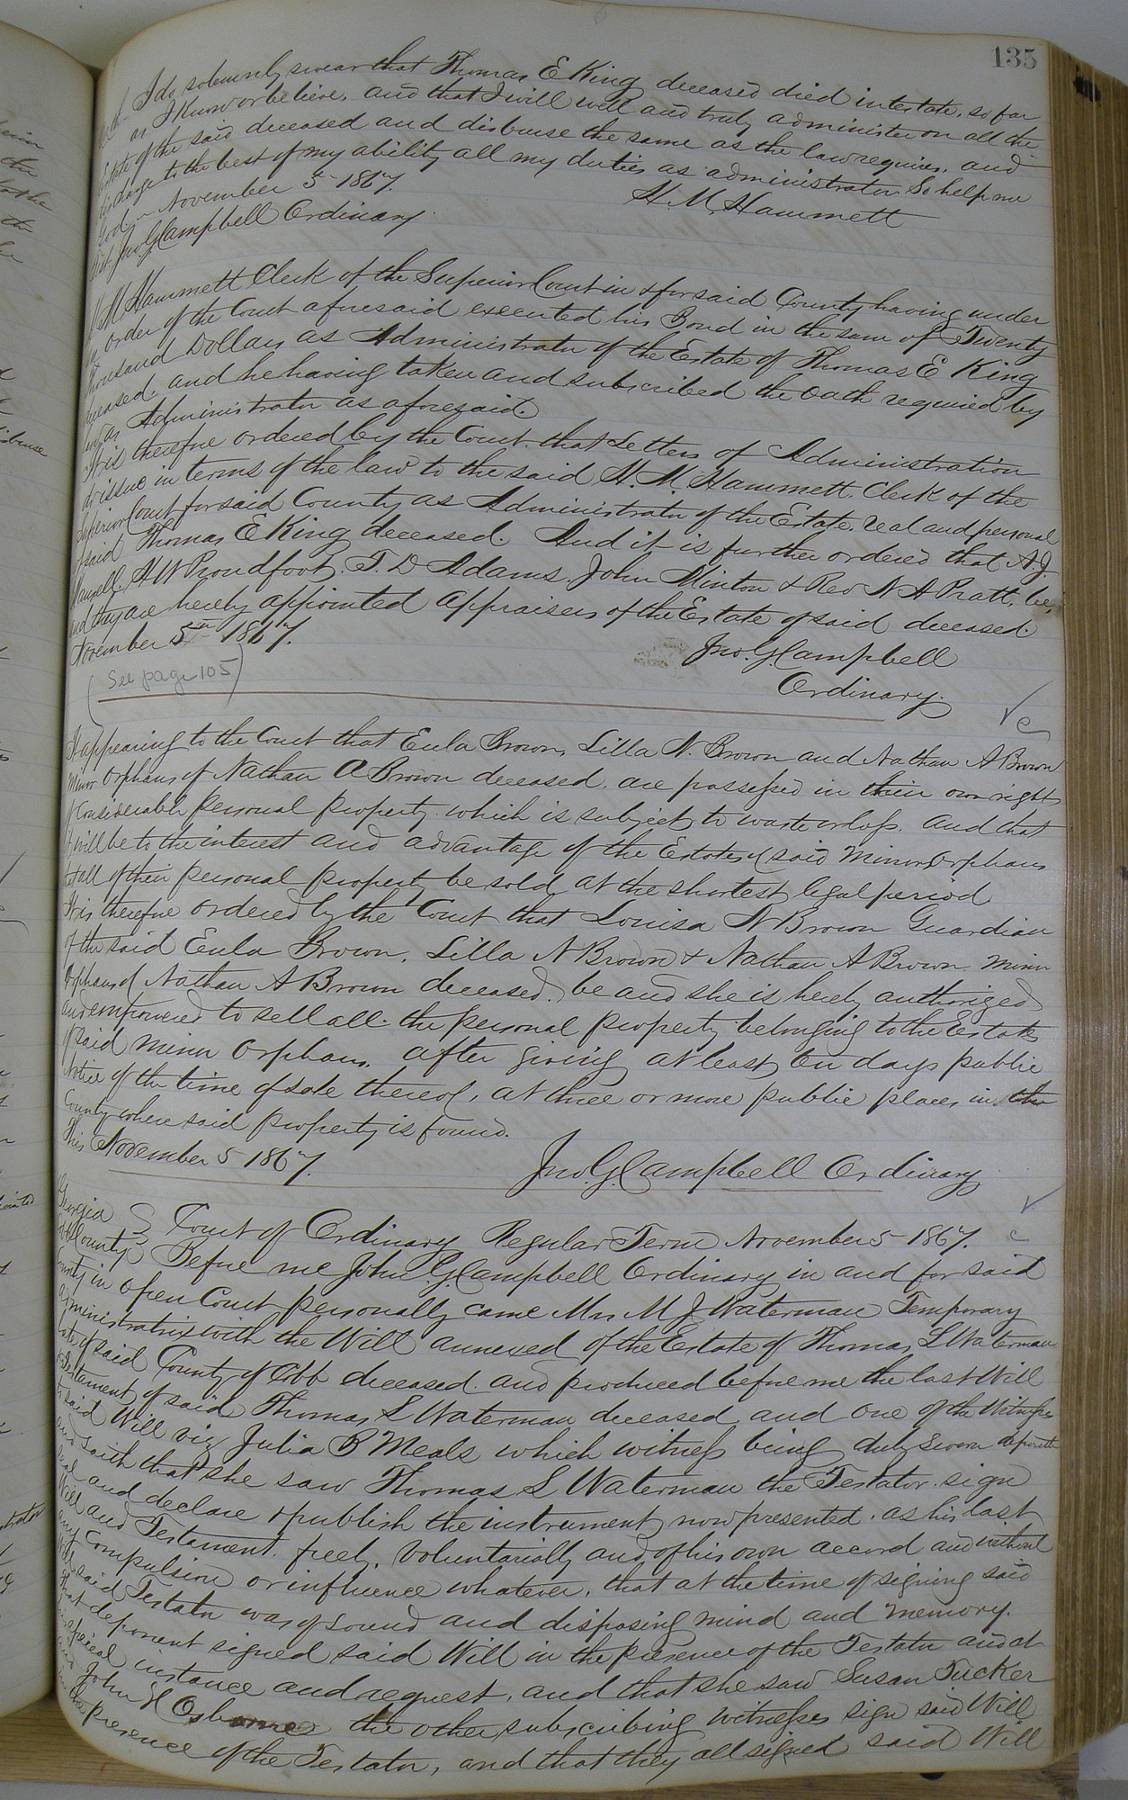 135
I do solemnly swear that Thomas E King deceased died intestate, so far
as I know or believe, and that I will well and truly administer on all the
Estate of the said deceased and disburse the same as the law requires, and
discharge to the best of my ability all my duties as administrator So help me
God November 5th 1867.
H. M. Hammett
Jno G Campbell Ordinary
H M Hammett Clerk of the Superior Court in & for said County having under
order of the Court aforesaid executed his Bond in the sum of Twenty
thousand Dollars as Administrator of the Estate of Thomas E King
deceased, and he having taken and subscribed the oath required by
law as Administrator as aforesaid.
It is therefore ordered by the Court that Letters of Administration
do issue in terms of the law to the said H. M. Hammett Clerk of the
Superior Court for said County as Administrator of the Estate real and personal
of said Thomas E King deceased. And it is further ordered that A. J.
Hansell, A W Proudfoot, T. D Adams, John Minton & Rev N A Pratt, be,
and they are hereby appointed appraisers of the Estate of said deceased.
November 5th 1867.
Jno. G. Campbell
Ordinary.
(See page 105)
It appearing to the Court that Eula Brown, Lilla N. Brown and Nathan A Brown
minor Orphans of Nathan A Brown deceased, are possessed in their own right
of considerable personal property which is subject to waste or loss, and that
it will be to the interest and advantage of the Estates of said Minor Orphans
that all of their personal property be sold at the shortest legal period
It is therefore ordered by the Court that Louisa N Brown Guardian
of the said Eula Brown, Lilla N Brown & Nathan A Brown minor
Orphans of Nathan A Brown deceased, be and she is hereby authorized
and empowered to sell all the personal property belonging to the Estate
of said minor orphans, after giving at least ten days public
Notice of the time of sale thereof, at three or more public places in the
County where said property is found.
This November 5 1867.
Jno. G. Campbell Ordinary
Georgia } Court of Ordinary Regular Term November 5 1867.
Cobb County } Before me John G. Campbell Ordinary in and for said
County in open Court personally came Mrs M J Waterman Temporary
Administratrix with the Will annexed of the Estate of Thomas L Waterman
late of said County of Cobb deceased and produced before me the last Will
& Testament of said Thomas L Waterman deceased and one of the Witnesses
to said Will viz Julia B Meals which witness being duly sworn deposeth
and saith that she saw Thomas L Waterman the Testator sign
seal and declare & publish the instrument now presented, as his last
Will and Testament, freely, voluntarially and of his own accord and without
any compulsion or influence whatever, that at the time of signing said
Will said Testator was of sound and disposing mind and memory.
that deponent signed said Will in the presence of the Testator and at
his special instance and request, and that she saw Susan Tucker
and John H Osborne the other subscribing witnesses sign said Will
in the presence of the Testator, and that they all signed said Will